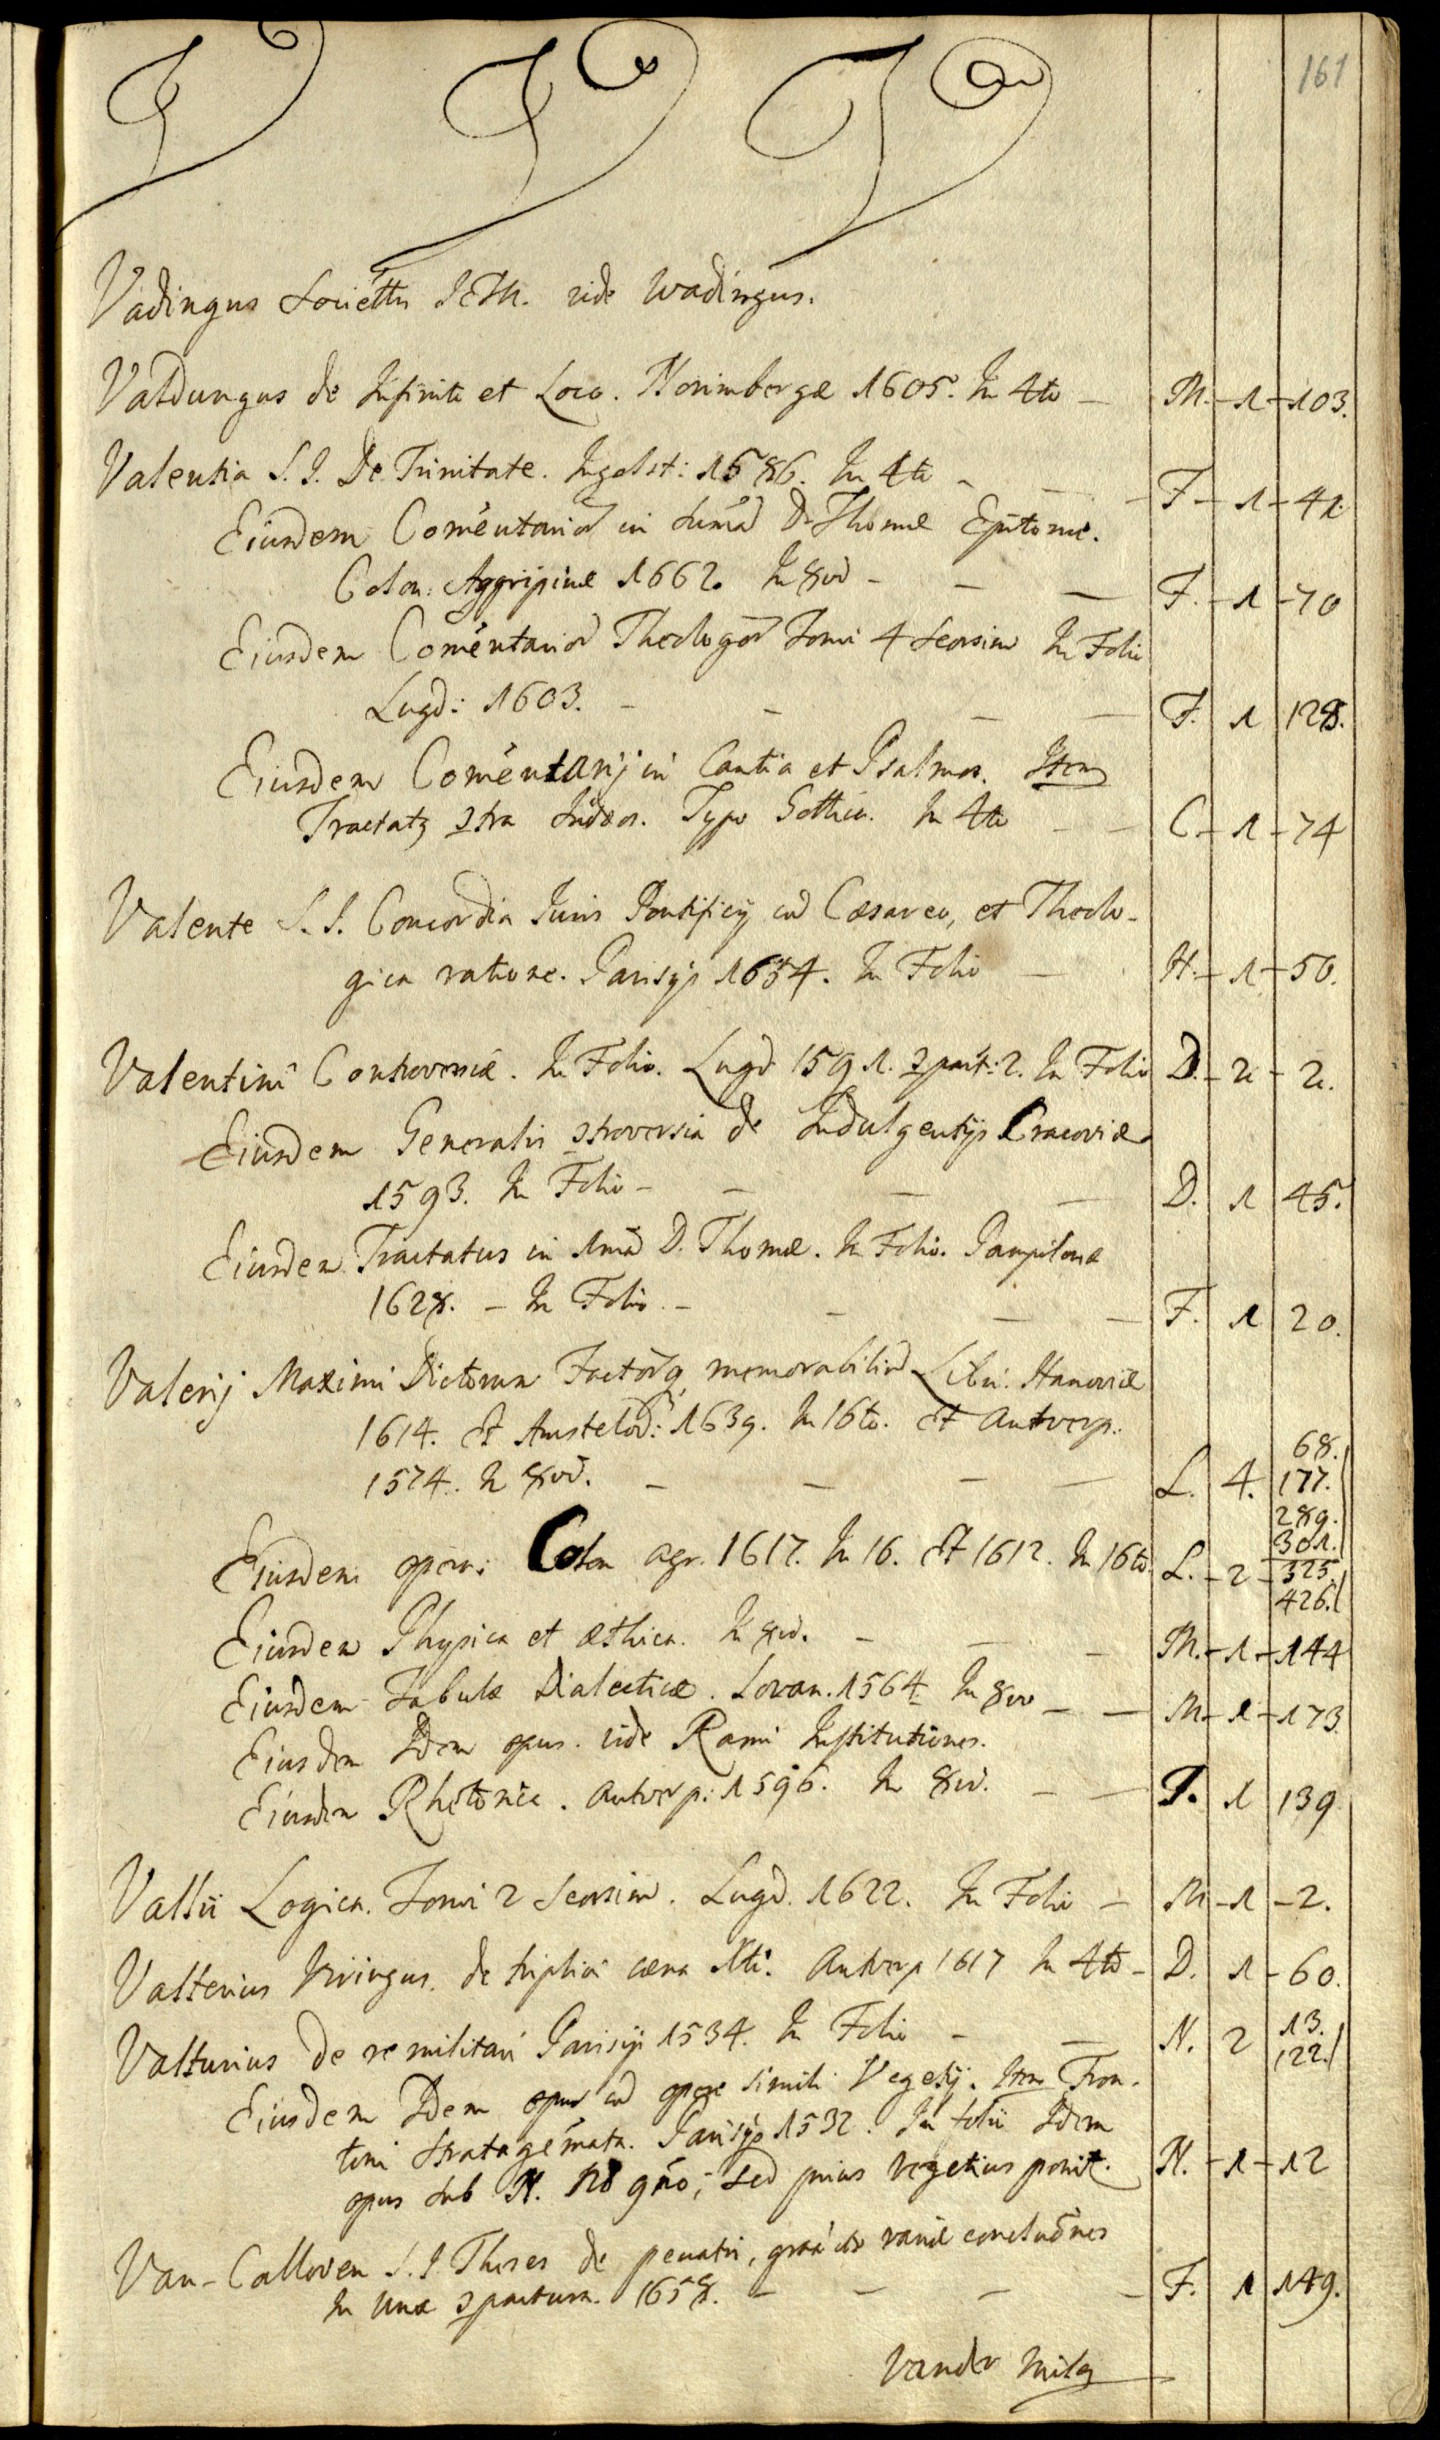 161
V V V
Vadingus Societtis JESu. vide Wadingus.
Valdungus de Infinito et Loco. Norimbergæ 1605. In 4to — M. - 1 - 103.
Valentia S. J. De Trinitate. Ingolst: 1586. In 4to - — F - 1 - 41.
Eiusdem Com̃entarior̃ in Sum̃ã D. Thomæ Epitome.
Colon: Aggripinæ 1662. In 8vo - — — F. - 1 - 70
Eiusdem Com̃entarior̃ Theologor̃ Tomi 4 Seorsim In Folio
Lugd: 1603. — — — — F. 1 128.
Eiusdem Com̃entarij in Cantica et Psalmos. Item
Tractatq Ɔtra Iudæos. Typo Gothico. In 4to — — C - 1 - 74
Valente S. J. Concordia Iuris Pontificij cũ Cæsareo, et Theolo-
gica ratione. Parisijs 1654. In Folio — H. - 1 - 50.
Valentini Controversiæ. In Folio. Lugd 1591. Ɔpact: 2. In Folio D. - 2 - 2.
Eiusdem Generalis Ɔtroversia de Indulgentijs Cracoviæ
1593. In Folio - — — — D. 1 45.
Eiusdem Tractatus in Sum̃ã D. Thomæ. In Folio. Pampilonæ
1628. — In Folio. — — — — F. 1 20.
Valerij Maximi Dictorum Factorq̃ memorabiliũ Libri. Hanoviæ
1614. Et Amstelod: 1639. In 16to. Et Antverp:
1574. In 8vo. — — — — L. 4. 68. 177. 289. 301.
Eiusdem opera: Colon agr. 1617. In 16. Et 1612. In 16to. L. - 2 - 325. 426.
Eiusdem Physica et Æthica. In 8vo. — — — M. - 1 - 144
Eiusdem Tabulæ Dialecticæ. Lovan. 1564 In 8vo — — M - 1 - 173
Eiusdem Idem opus. vide Rami Institutiones.
Eiusdem Rhetorica. Antverp: 1596. In 8vo. — — P. 1 139
Vallii Logica. Tomi 2 Seorsim. Lugd. 1622. In Folio — M - 1 - 2.
Valterius Viringus. de triplici cæna Xti. Antverp 1617 In 4to - D. 1 - 60.
Valturius De re militari Parisijs 1534. In Folio — — N. 2 13. 122.
Eiusdem Idem opus cũ opere simili Vegetij. Item Fron-
tini Stratagemata. Parisijs 1532. In folio Idem
opus sub N. 128 gño; sed prius Vegetius ponit. N. - 1 - 12
Van-Calloven S. J. Theses de peccatis, grãa etc variæ conclusiones
In Unũ Ɔpactum. 1658. — — — — F. 1 149.
Vander Mila